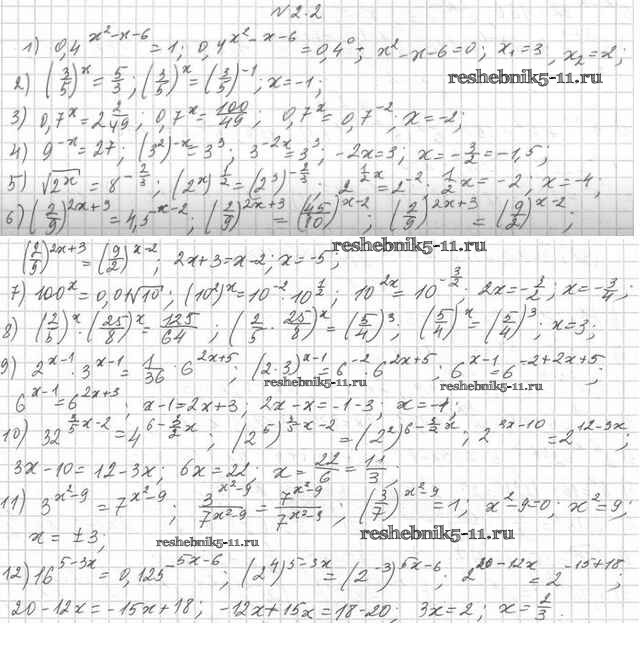 №2.2
1) 0,4^(x²-x-6) = 1; 0,4^(x²-x-6) = 0,4⁰; x²-x-6=0; x₁=3; x₂=2;
2) (3/5)^x = 5/3; (3/5)^x = (3/5)^(-1); x=-1; reshebnik5-11.ru
3) 0,7^x = 2 2/49; 0,7^x = 100/49; 0,7^x = 0,7^(-2); x=-2;
4) 9^(-x) = 27; (3²)^(-x) = 3³; 3^(-2x) = 3³; -2x=3; x=-3/2=-1,5;
5) √(2^x) = 8^(-2/3); (2^x)^(1/2) = (2³)^(-2/3); 2^(1/2 x) = 2^(-2); 1/2 x = -2; x=-4;
6) (2/9)^(2x+3) = 4,5^(x-2); (2/9)^(2x+3) = (45/10)^(x-2); (2/9)^(2x+3) = (9/2)^(x-2);
(2/9)^(2x+3) = (9/2)^(x-2); 2x+3=x-2; x=-5; reshebnik5-11.ru
7) 100^x = 0,01√10; (10²)^x = 10^(-2) · 10^(1/2); 10^(2x) = 10^(-3/2); 2x=-3/2; x=-3/4;
8) (2/5)^x · (25/8)^x = 125/64; (2/5 · 25/8)^x = (5/4)³; (5/4)^x = (5/4)³; x=3;
9) 2^(x-1) · 3^(x-1) = 1/36 · 6^(2x+5); (2·3)^(x-1) = 6^(-2) · 6^(2x+5); 6^(x-1) = 6^(-2+2x+5);
reshebnik5-11.ru reshebnik5-11.ru
6^(x-1) = 6^(2x+3); x-1=2x+3; 2x-x=-1-3; x=-4;
10) 32^(3/5 x-2) = 4^(6-3/2 x); (2⁵)^(3/5 x-2) = (2²)^(6-3/2 x); 2^(3x-10) = 2^(12-3x);
3x-10=12-3x; 6x=22; x=22/6=11/3;
11) 3^(x²-9) = 7^(x²-9); 3^(x²-9)/7^(x²-9) = 7^(x²-9)/7^(x²-9); (3/7)^(x²-9) = 1; x²-9=0; x²=9;
x=±3; reshebnik5-11.ru reshebnik5-11.ru
12) 16^(5-3x) = 0,125^(5x-6); (2⁴)^(5-3x) = (2^(-3))^(5x-6); 2^(20-12x) = 2^(-15+18);
20-12x=-15x+18; -12x+15x=18-20; 3x=2; x=2/3.